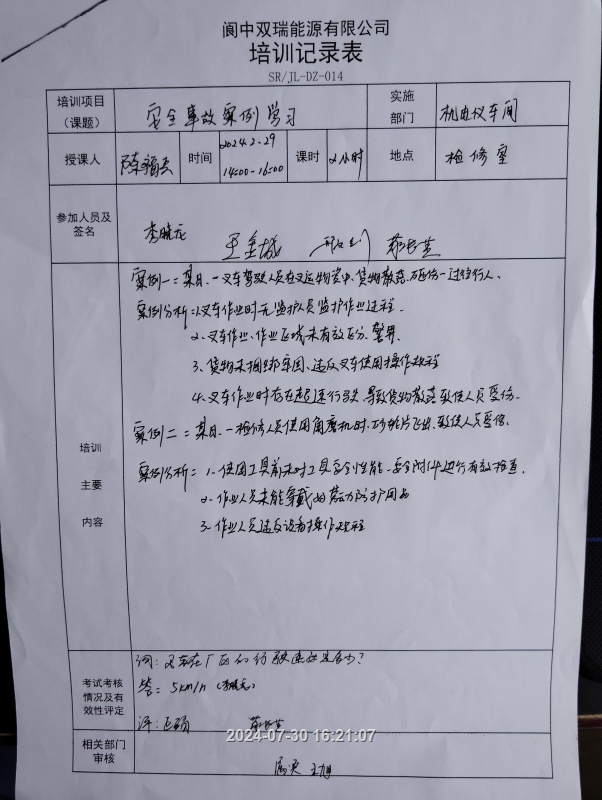 阆中双瑞能源有限公司
培训记录表
SR/JL-DZ-014
培训项目（课题） 安全事故案例学习 实施部门 机电仪车间
授课人 陈福长 时间 2024.2.29 14:00-16:00 课时 2小时 地点 检修室
参加人员及签名 李晓龙 王金城
培训主要内容
案例一：某日,一叉车驾驶人员在叉运物资中、货物散落、砸伤一过往行人、
案例分析：1.叉车作业时无监护人员监护作业过程.
2、叉车作业、作业区域未有效区分、警界.
3、货物未捆绑牢固、违反叉车使用操作规程
4、叉车作业时存在超速行驶、导致货物散落致使人员受伤.
案例二：某日、一检修人员使用角磨机时、砂轮片飞出、致使人员受伤.
案例分析：1.使用工具前未对工具安全性能、安全附件进行有效检查.
2、作业人员未能穿戴好劳动防护用品
3、作业人员违反设备操作规程
考试考核情况及有效性评定
问：叉车在厂区的行驶速度是多少？
答：5km/h (李晓龙)
评：正确
2024-07-30 16:21:07
相关部门审核 王旭